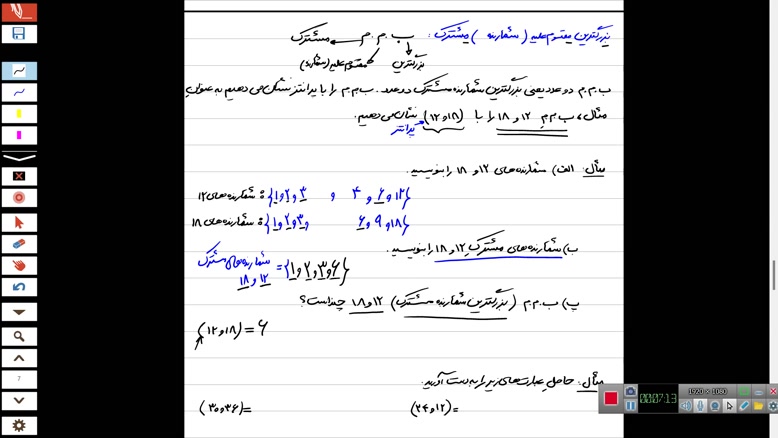 بزرگترین مقسوم علیه (شمارنده) مشترک:
ب.م.م
مشترک
بزرگترین
مقسوم علیه (شمارنده)
ب.م.م دو عدد یعنی بزرگترین شمارنده مشترک دو عدد. ب.م.م را با پرانتز نشان می دهیم به عنوان
مثال، ب.م.م ۱۲ و ۱۸ را با (۱۲و۱۸) نشان می دهیم.
پرانتز
مثال: الف) شمارنده های ۱۲ و ۱۸ را بنویسید.
شمارنده های ۱۲ : {۱و۲و۳ و ۴ و ۶و۱۲}
شمارنده های ۱۸ : {۱و۲و۳و ۶و ۹ و۱۸}
ب) شمارنده های مشترک ۱۲ و ۱۸ را بنویسید.
شمارنده های مشترک ۱۲ و ۱۸ = {۱و۲و۳و۶}
پ) ب.م.م (بزرگترین شمارنده مشترک) ۱۲ و ۱۸ چند است؟
(۱۲و۱۸) = ۶
مثال: حاصل عبارت های زیر را به دست آورید.
(۲۴و۱۲) =
(۳۰و۳۶) =
7
1920 × 1080
00:07:13